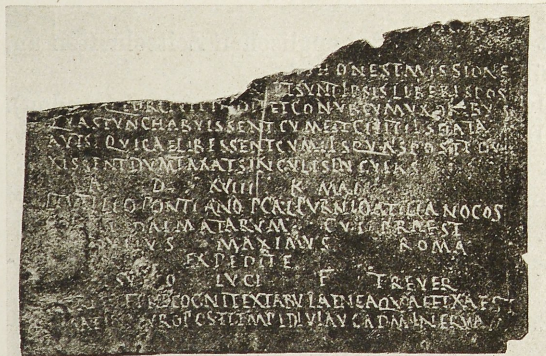 HONESTMISSIONE
TSVNTIPSISLIBERISPOS
ETCONVBCVMVXORIBV
QVASTVNCHABVISSENTCVMESTCIVITIISDATA
AVTSIQVICAELIBESSENTCVMIISQVASPOSTEADV
XISSENTDVMTAXATSINGVLISINGVLAS
A D XVIII K MAI
TVTILIOPONTIANO PCALPVRNIOATILIANOCOS
DALMATARVM CVI PRAEST
IVLIVS MAXIMVS ROMA
EXPEDITE
LVCI F TREVER
ETRECOGNITEXTABVLAENEAQVAEFIXAES
ROPOSTTEMPLDIVIAVGADMINERVA